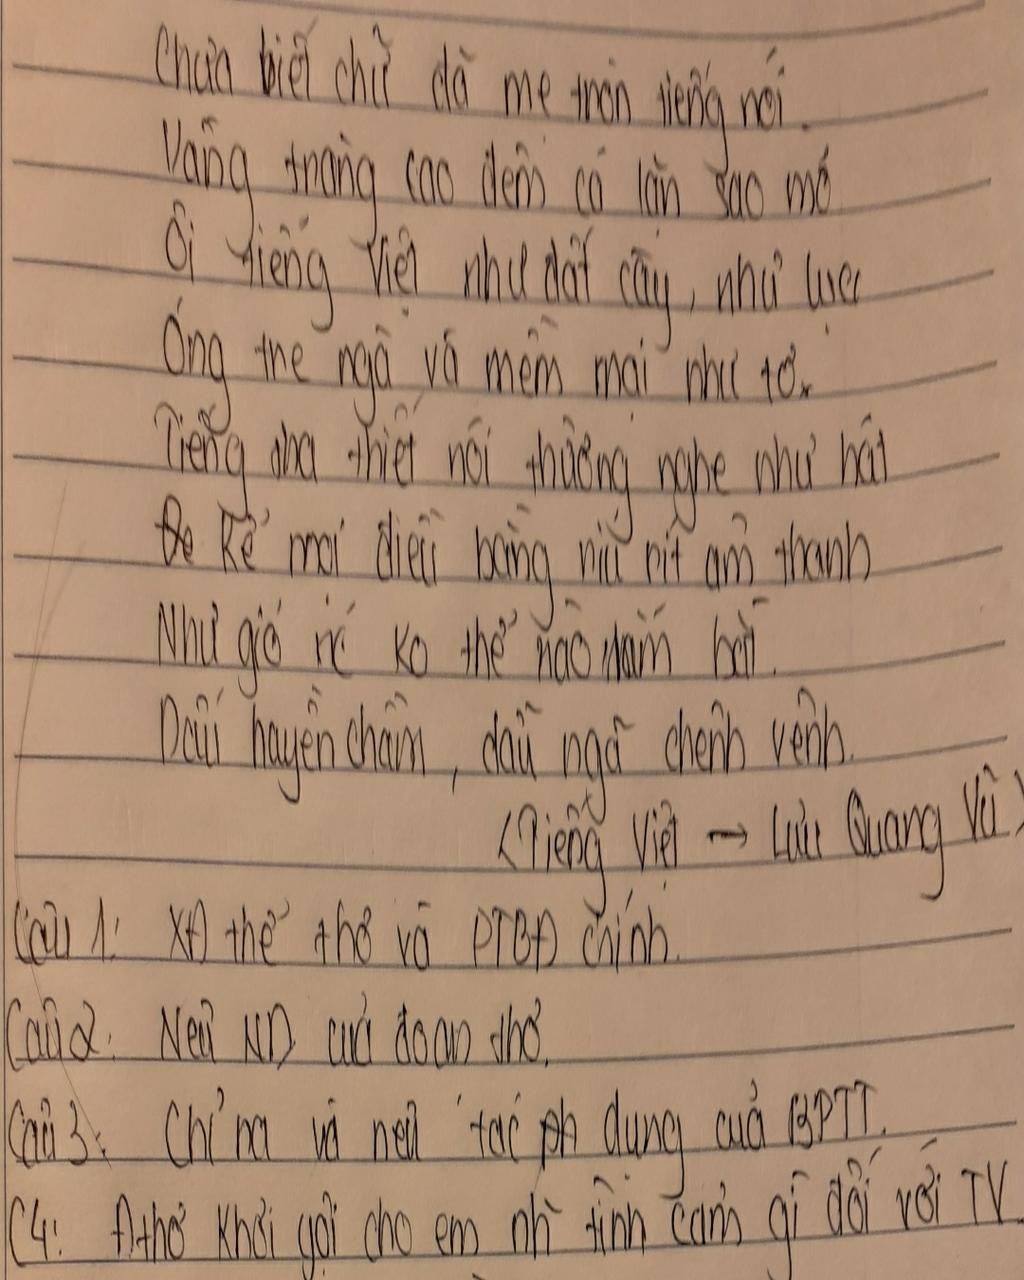 Chưa biết chữ đã mê tròn tiếng nói.
Vầng trăng cao đêm cá lặn sao mờ
Ôi tiếng Việt như đất cày, như lụa
Óng tre ngà và mềm mại như tơ.
Tiếng tha thiết nói thường nghe như hát
Để kể mọi điều bằng ríu rít âm thanh
Như gió nước ko thể nào nắm bắt.
Dấu huyền chầm, dấu ngã chênh vênh.
(Tiếng Việt → Lưu Quang Vũ)
Câu 1: XĐ thể thơ và PTBĐ chính.
Câu 2: Nêu ND của đoạn thơ.
Câu 3: Chỉ ra và nêu tác dụng của BPTT.
C4: Đ thơ khơi gợi cho em nh tình cảm gì đối với TV